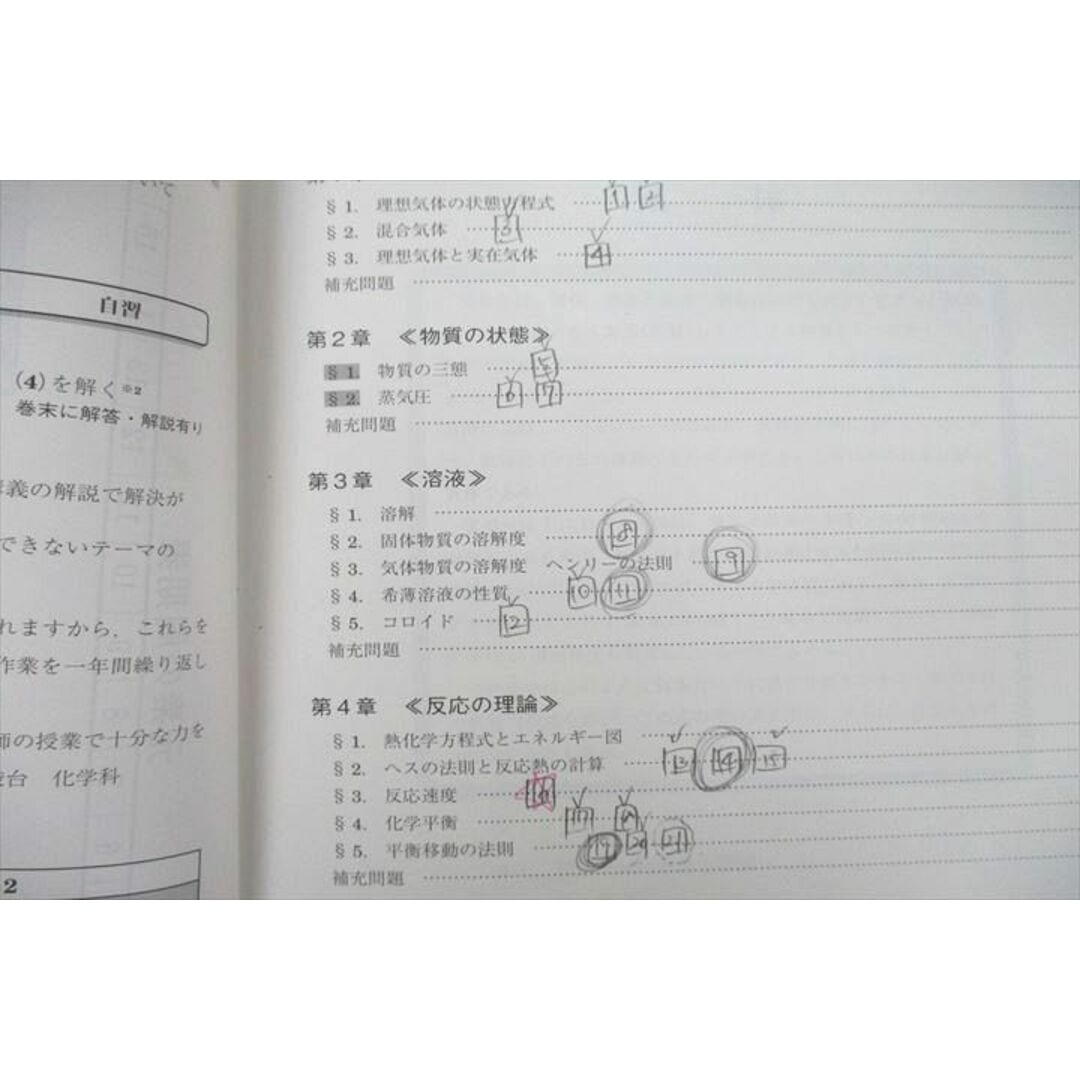 自習
(4)を解く※2
巻末に解答・解説有り
義の解説で解決が
できないテーマの
れますから，これらを
作業を一年間繰り返し
師の授業で十分な力を
台 化学科
2
§1. 理想気体の状態方程式 1 2
§2. 混合気体 3
§3. 理想気体と実在気体 4
補充問題
第2章 ≪物質の状態≫
§1. 物質の三態 5
§2. 蒸気圧 6 7
補充問題
第3章 ≪溶液≫
§1. 溶解
§2. 固体物質の溶解度 8
§3. 気体物質の溶解度 ヘンリーの法則 9
§4. 希薄溶液の性質 10 11
§5. コロイド 12
補充問題
第4章 ≪反応の理論≫
§1. 熱化学方程式とエネルギー図
§2. ヘスの法則と反応熱の計算 13 14 15
§3. 反応速度
§4. 化学平衡 17
§5. 平衡移動の法則 19 20 21
補充問題